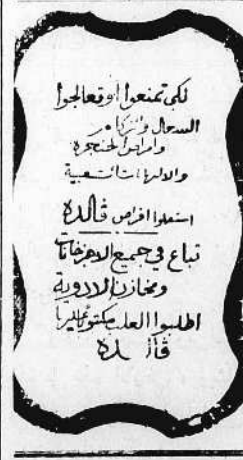 لكي تمنعوا أو تعالجوا
السعال والزكام
وامراض الحنجرة
والالتهابات الشعبية
استعملوا اقراص ڤالده
تباع في جميع الاجزخانات
ومخازن الادوية
اطلبوا العلب مكتوبا عليها
ڤالده